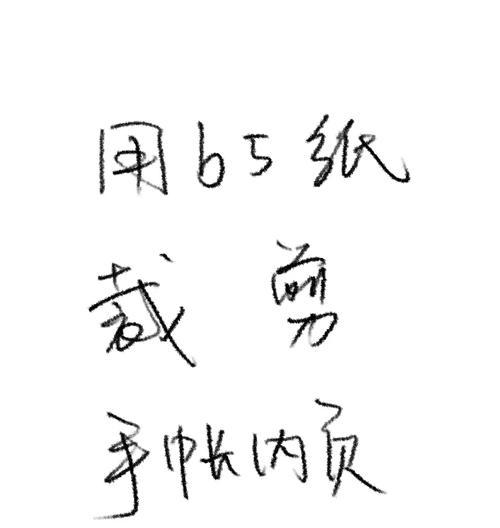 用b5纸
裁剪
手帐内页